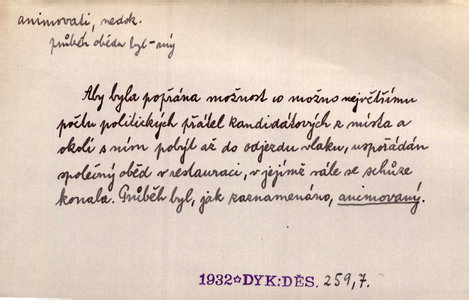 animovati, nedok.
průběh oběda byl -aný
Aby byla popřána možnost co možno největšímu
počtu politických přátel kandidátových z místa a
okolí s ním pobýt až do odjezdu vlaku, uspořádán
společný oběd v restauraci, v jejímž sále se schůze
konala. Průběh byl, jak zaznamenáno, animovaný.
1932*DYK:DĚS. 259,7.